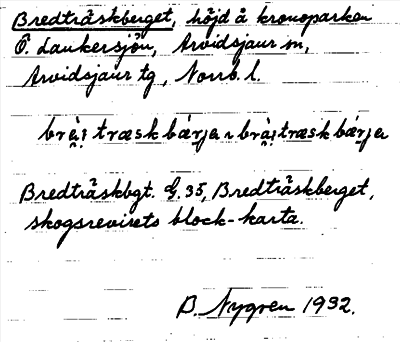 Bredträskberget, höjd å kronoparken
Ö. Laukersjön, Arvidsjaur sn,
Arvidsjaur tg, Norrb. l.
træsk bærja træsk bærja
Bredträskbgt. G. 35, Bredträskberget,
skogsrevirets block-karta.
B. Nygren 1932.